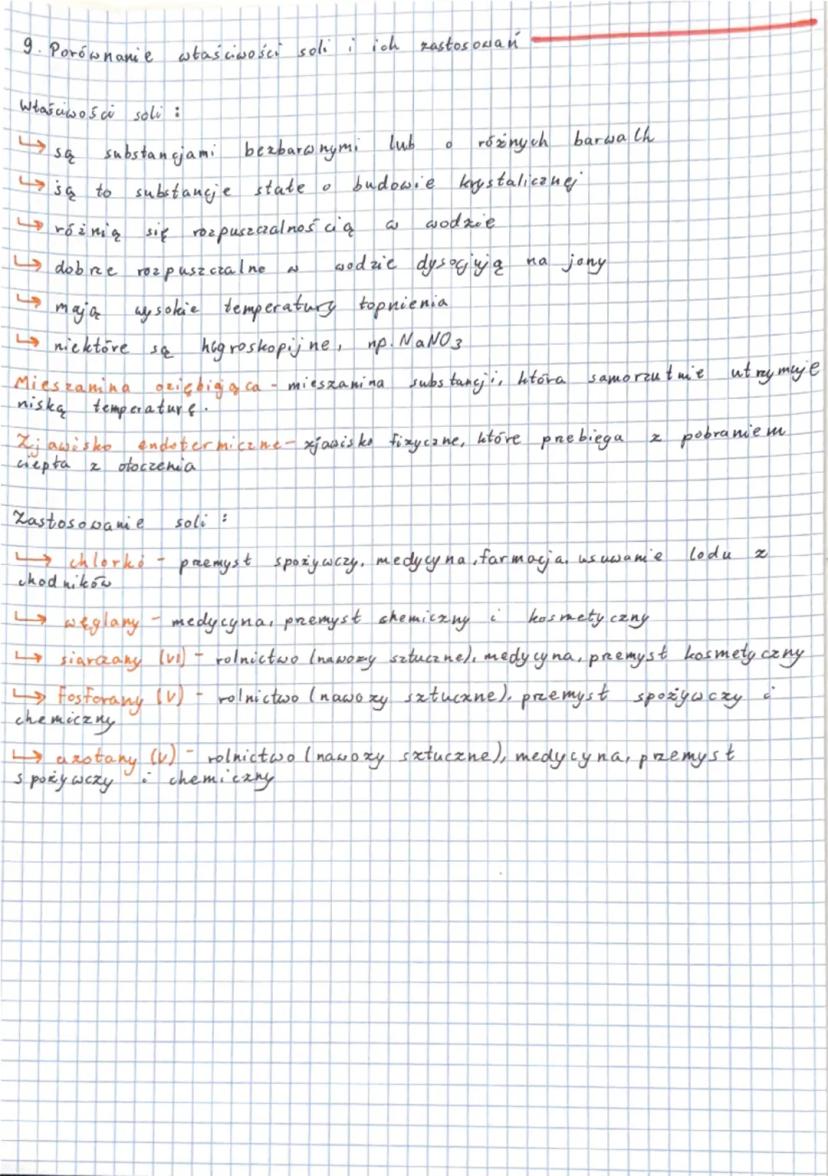 9. Porównanie właściwości soli i ich zastosowań
Właściwości soli :
↳ są substancjami bezbarwnymi lub o różnych barwach
↳ są to substancje stałe o budowie krystalicznej
↳ różnią się rozpuszczalnością w wodzie
↳ dobrze rozpuszczalne w wodzie dysocjują na jony
↳ mają wysokie temperatury topnienia
↳ niektóre są higroskopijne, np. NaNO3
Mieszanina oziębiająca - mieszanina substancji, która samorzutnie utrzymuje
niską temperaturę.
Zjawisko endotermiczne - zjawisko fizyczne, które przebiega z pobraniem
ciepła z otoczenia
Zastosowanie soli :
↳ chlorki - przemysł spożywczy, medycyna, farmacja, usuwanie lodu z
chodników
↳ węglany - medycyna, przemysł chemiczny i kosmetyczny
↳ siarczany (VI) - rolnictwo (nawozy sztuczne), medycyna, przemysł kosmetyczny
↳ fosforany (V) - rolnictwo (nawozy sztuczne), przemysł spożywczy i
chemiczny
↳ azotany (V) - rolnictwo (nawozy sztuczne), medycyna, przemysł
spożywczy i chemiczny